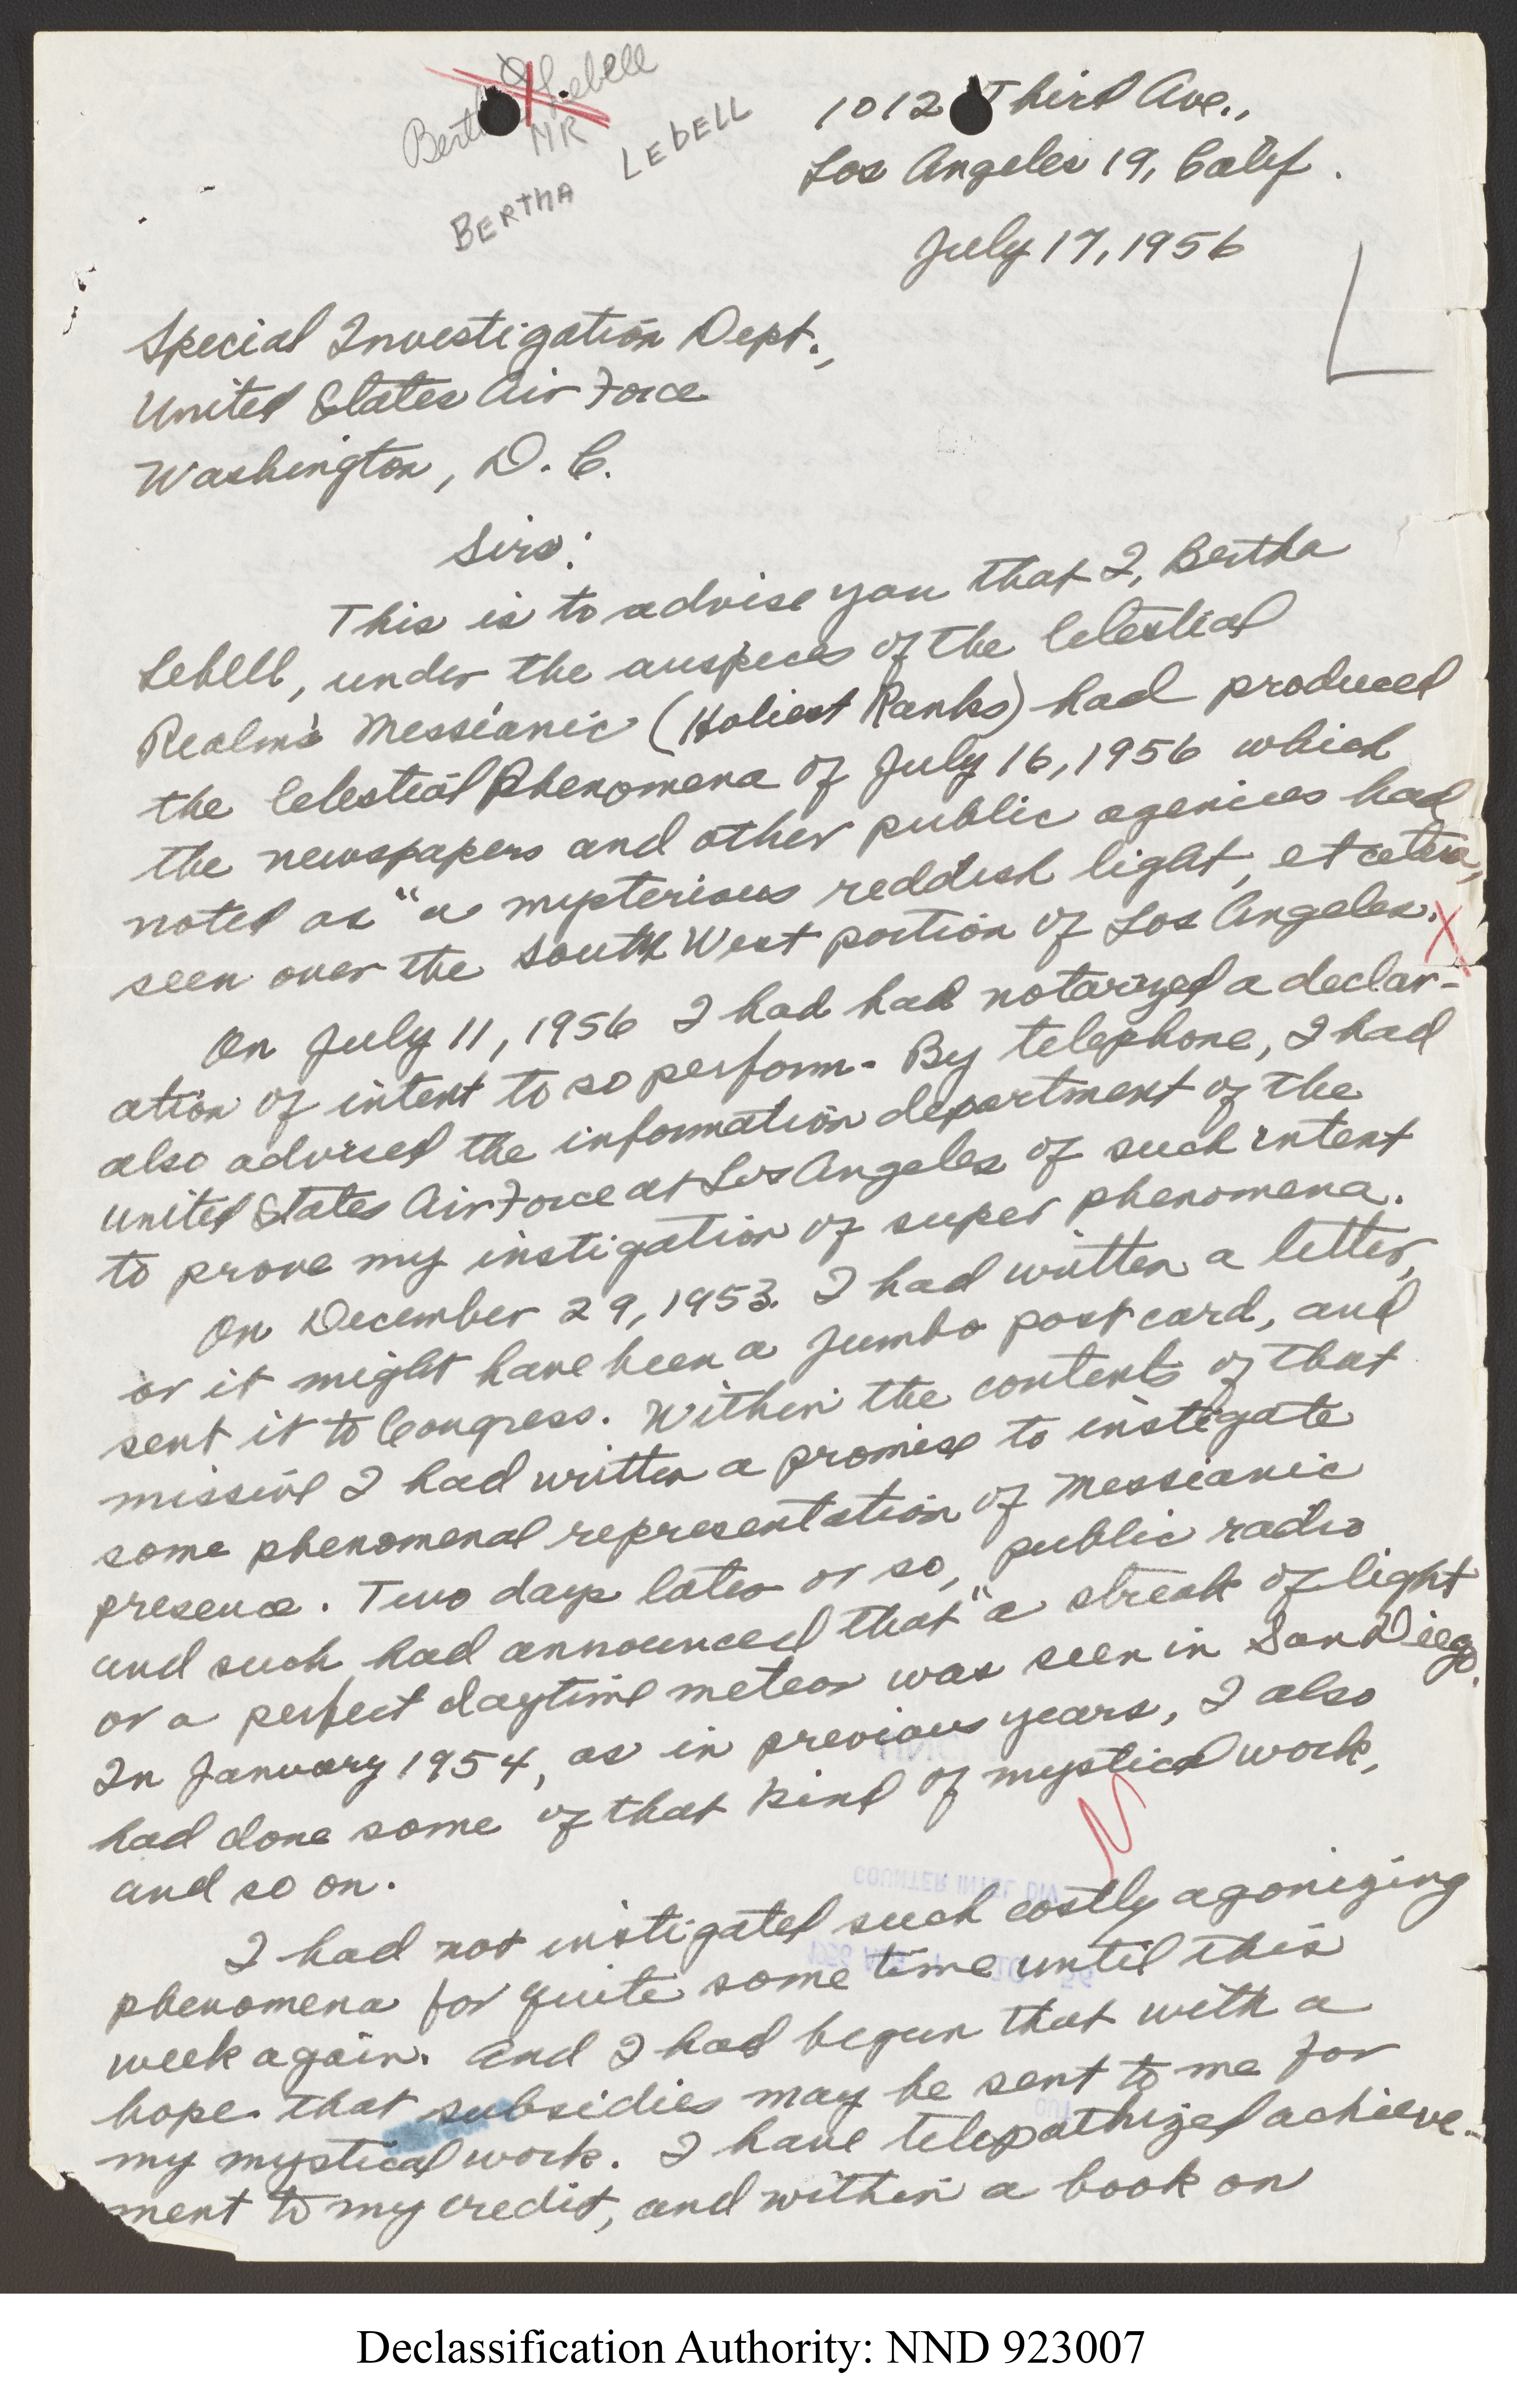 Bertha Lebell
MR
BERTHA LEBELL
1012 Third Ave.,
Los Angeles 19, Calif.
July 17, 1956
L
Special Investigation Dept.,
United States Air Force
Washington, D. C.
Sirs:
This is to advise you that I, Bertha
Lebell, under the auspices of the Celestial
Realm's Messianic (Holiest Ranks) had produced
the Celestial Phenomena of July 16, 1956 which
the newspapers and other public agencies had
noted as "a mysterious reddish light, et cetera,
seen over the South West portion of Los Angeles.
X
On July 11, 1956 I had had notarized a declar-
ation of intent to so perform. By telephone, I had
also advised the information department of the
United States Air Force at Los Angeles of such intent
to prove my instigation of super phenomena.
On December 29, 1953. I had written a letter,
or it might have been a jumbo post card, and
sent it to Congress. Within the contents of that
missive I had written a promise to instigate
some phenomenal representation of Messianic
presence. Two days later or so, public radio
and such had announced that "a streak of light
or a perfect daytime meteor was seen in San Diego.
In January 1954, as in previous years, I also
had done some of that kind of mystical work,
and so on.
COUNTER INTEL DIV
I had not instigated such costly agonizing
phenomena for quite some time until this
week again. And I had begun that with a
hope that subsidies may be sent to me for
my mystical work. I have telepathized achieve-
ment to my credit, and within a book on
Declassification Authority: NND 923007